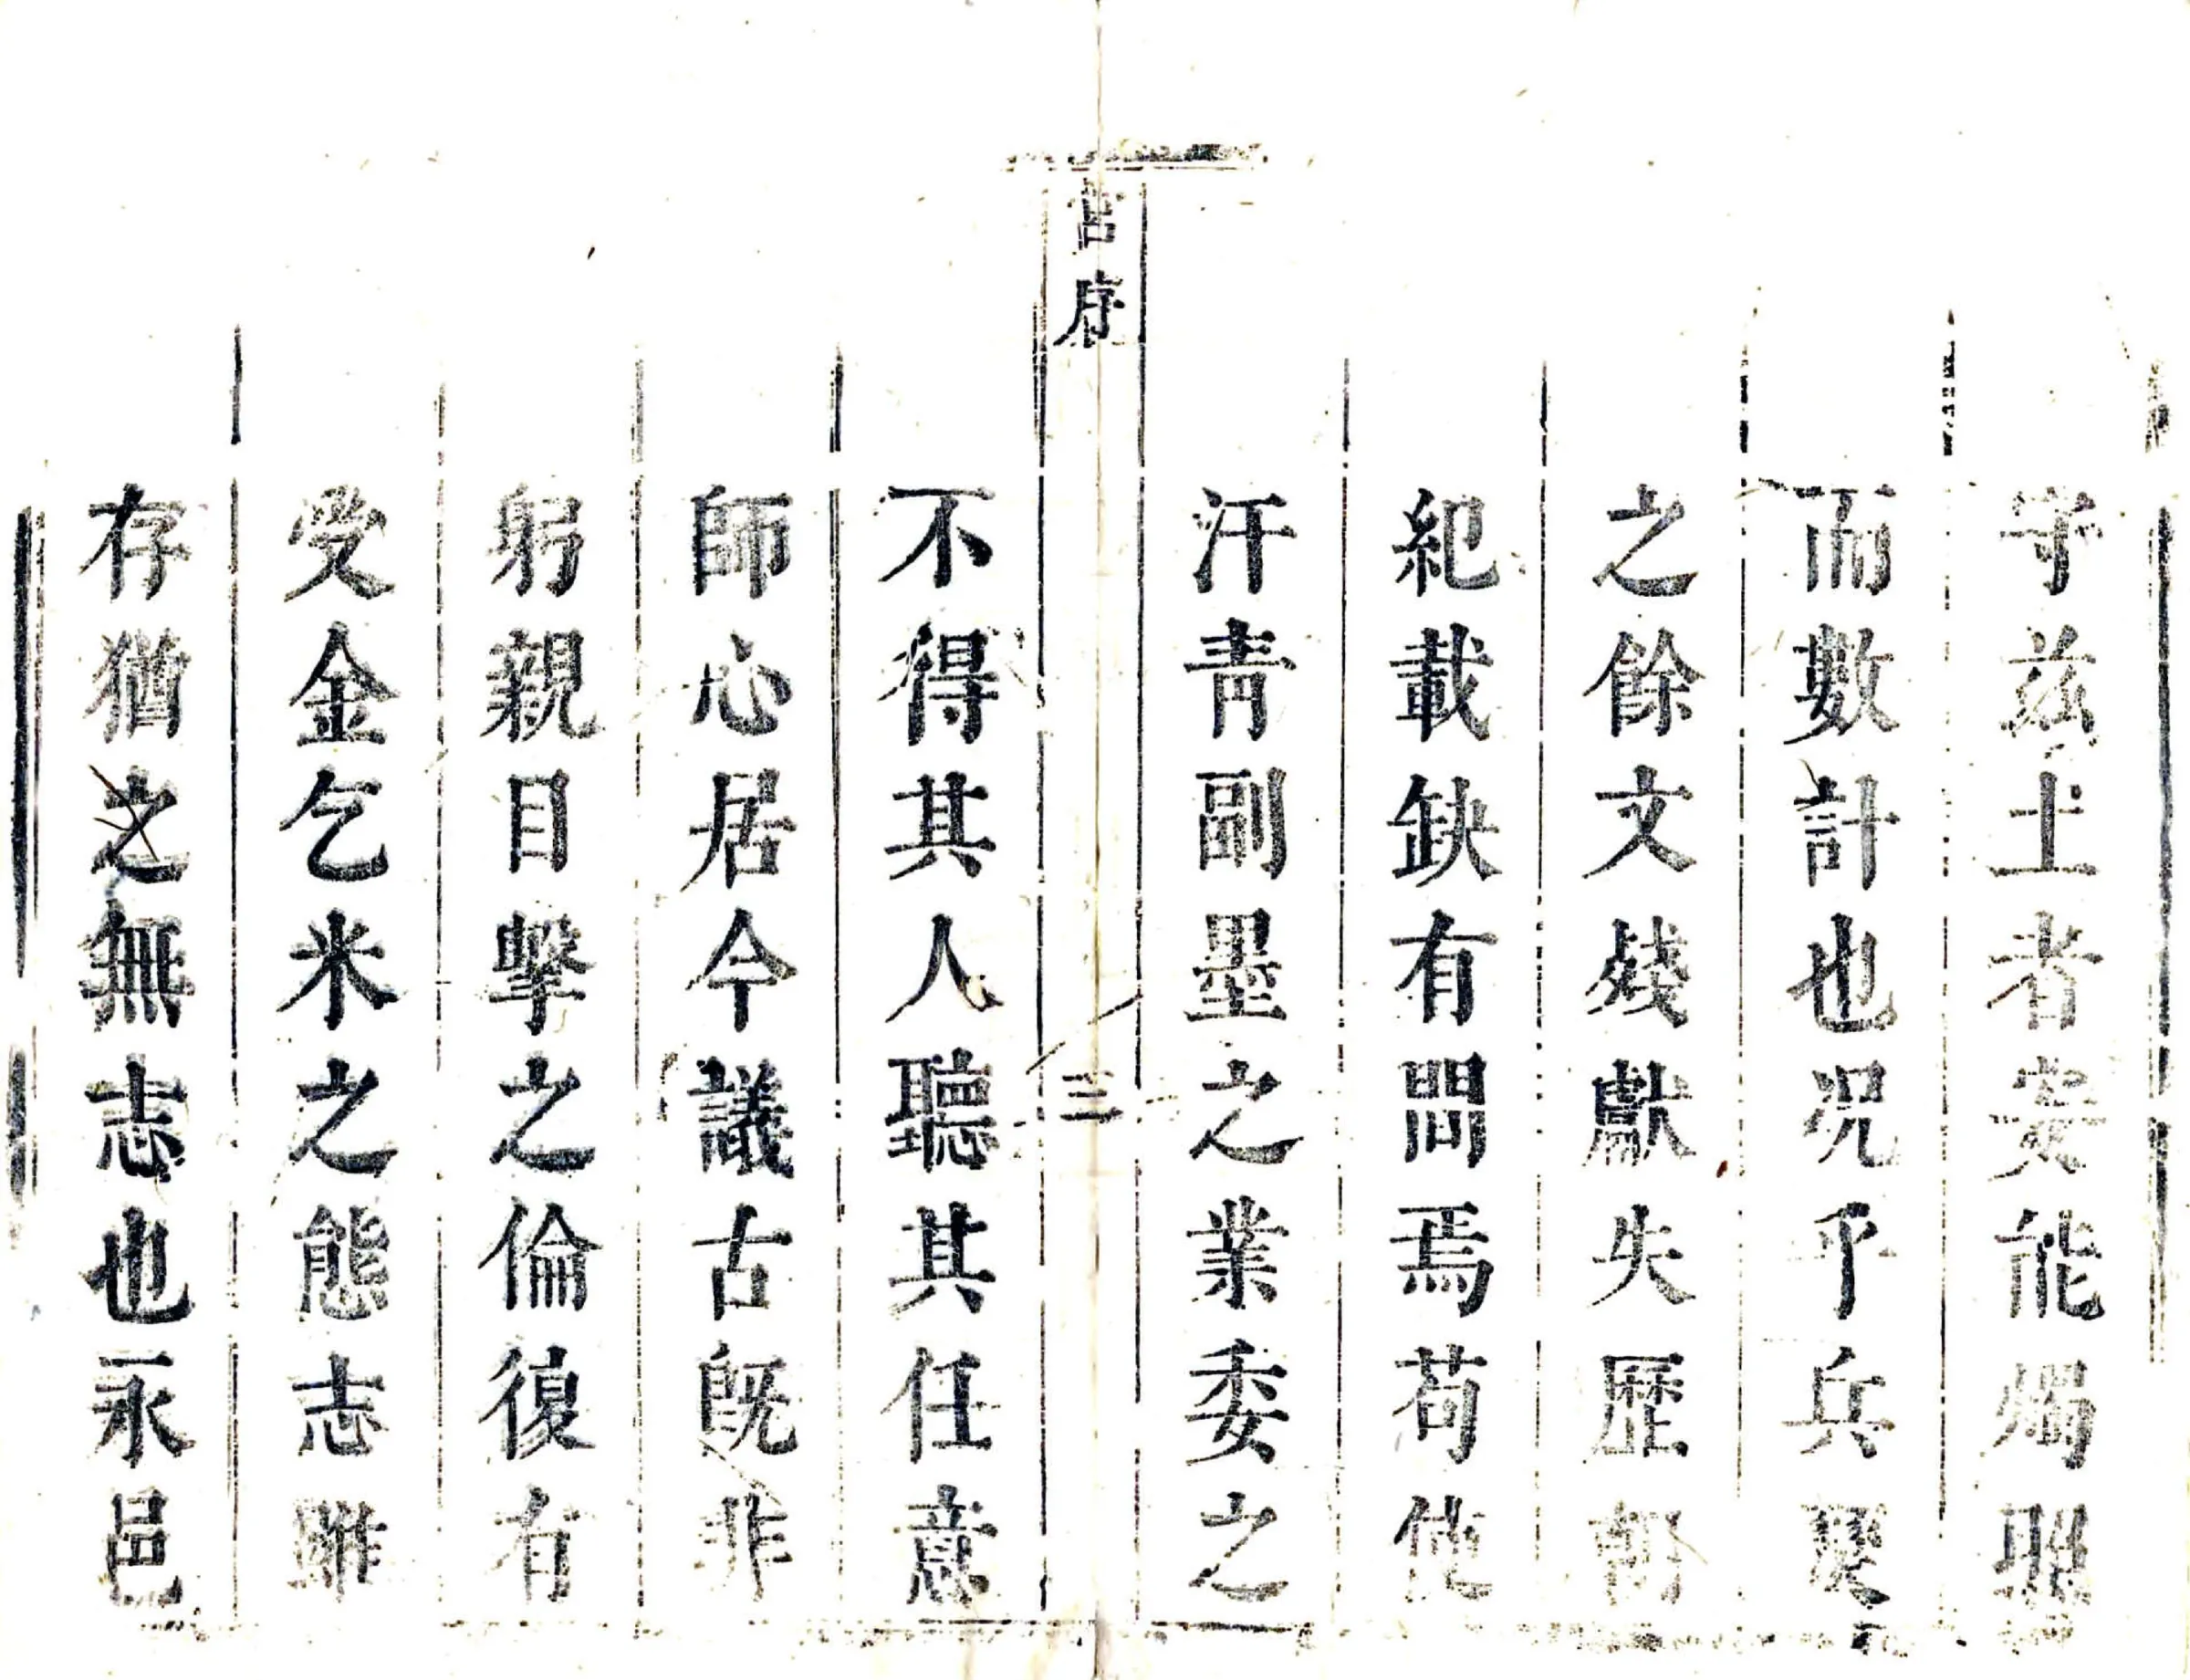 守兹土者安能燭照
而數計也况乎兵燹
之餘文殘獻失歷朝
紀載缺有間焉苟使
汗青副墨之業委之
序
三
不得其人聽其任意
師心居今議古旣非
躬親目擊之倫復有
受金乞米之態志雖
存猶之無志也永邑